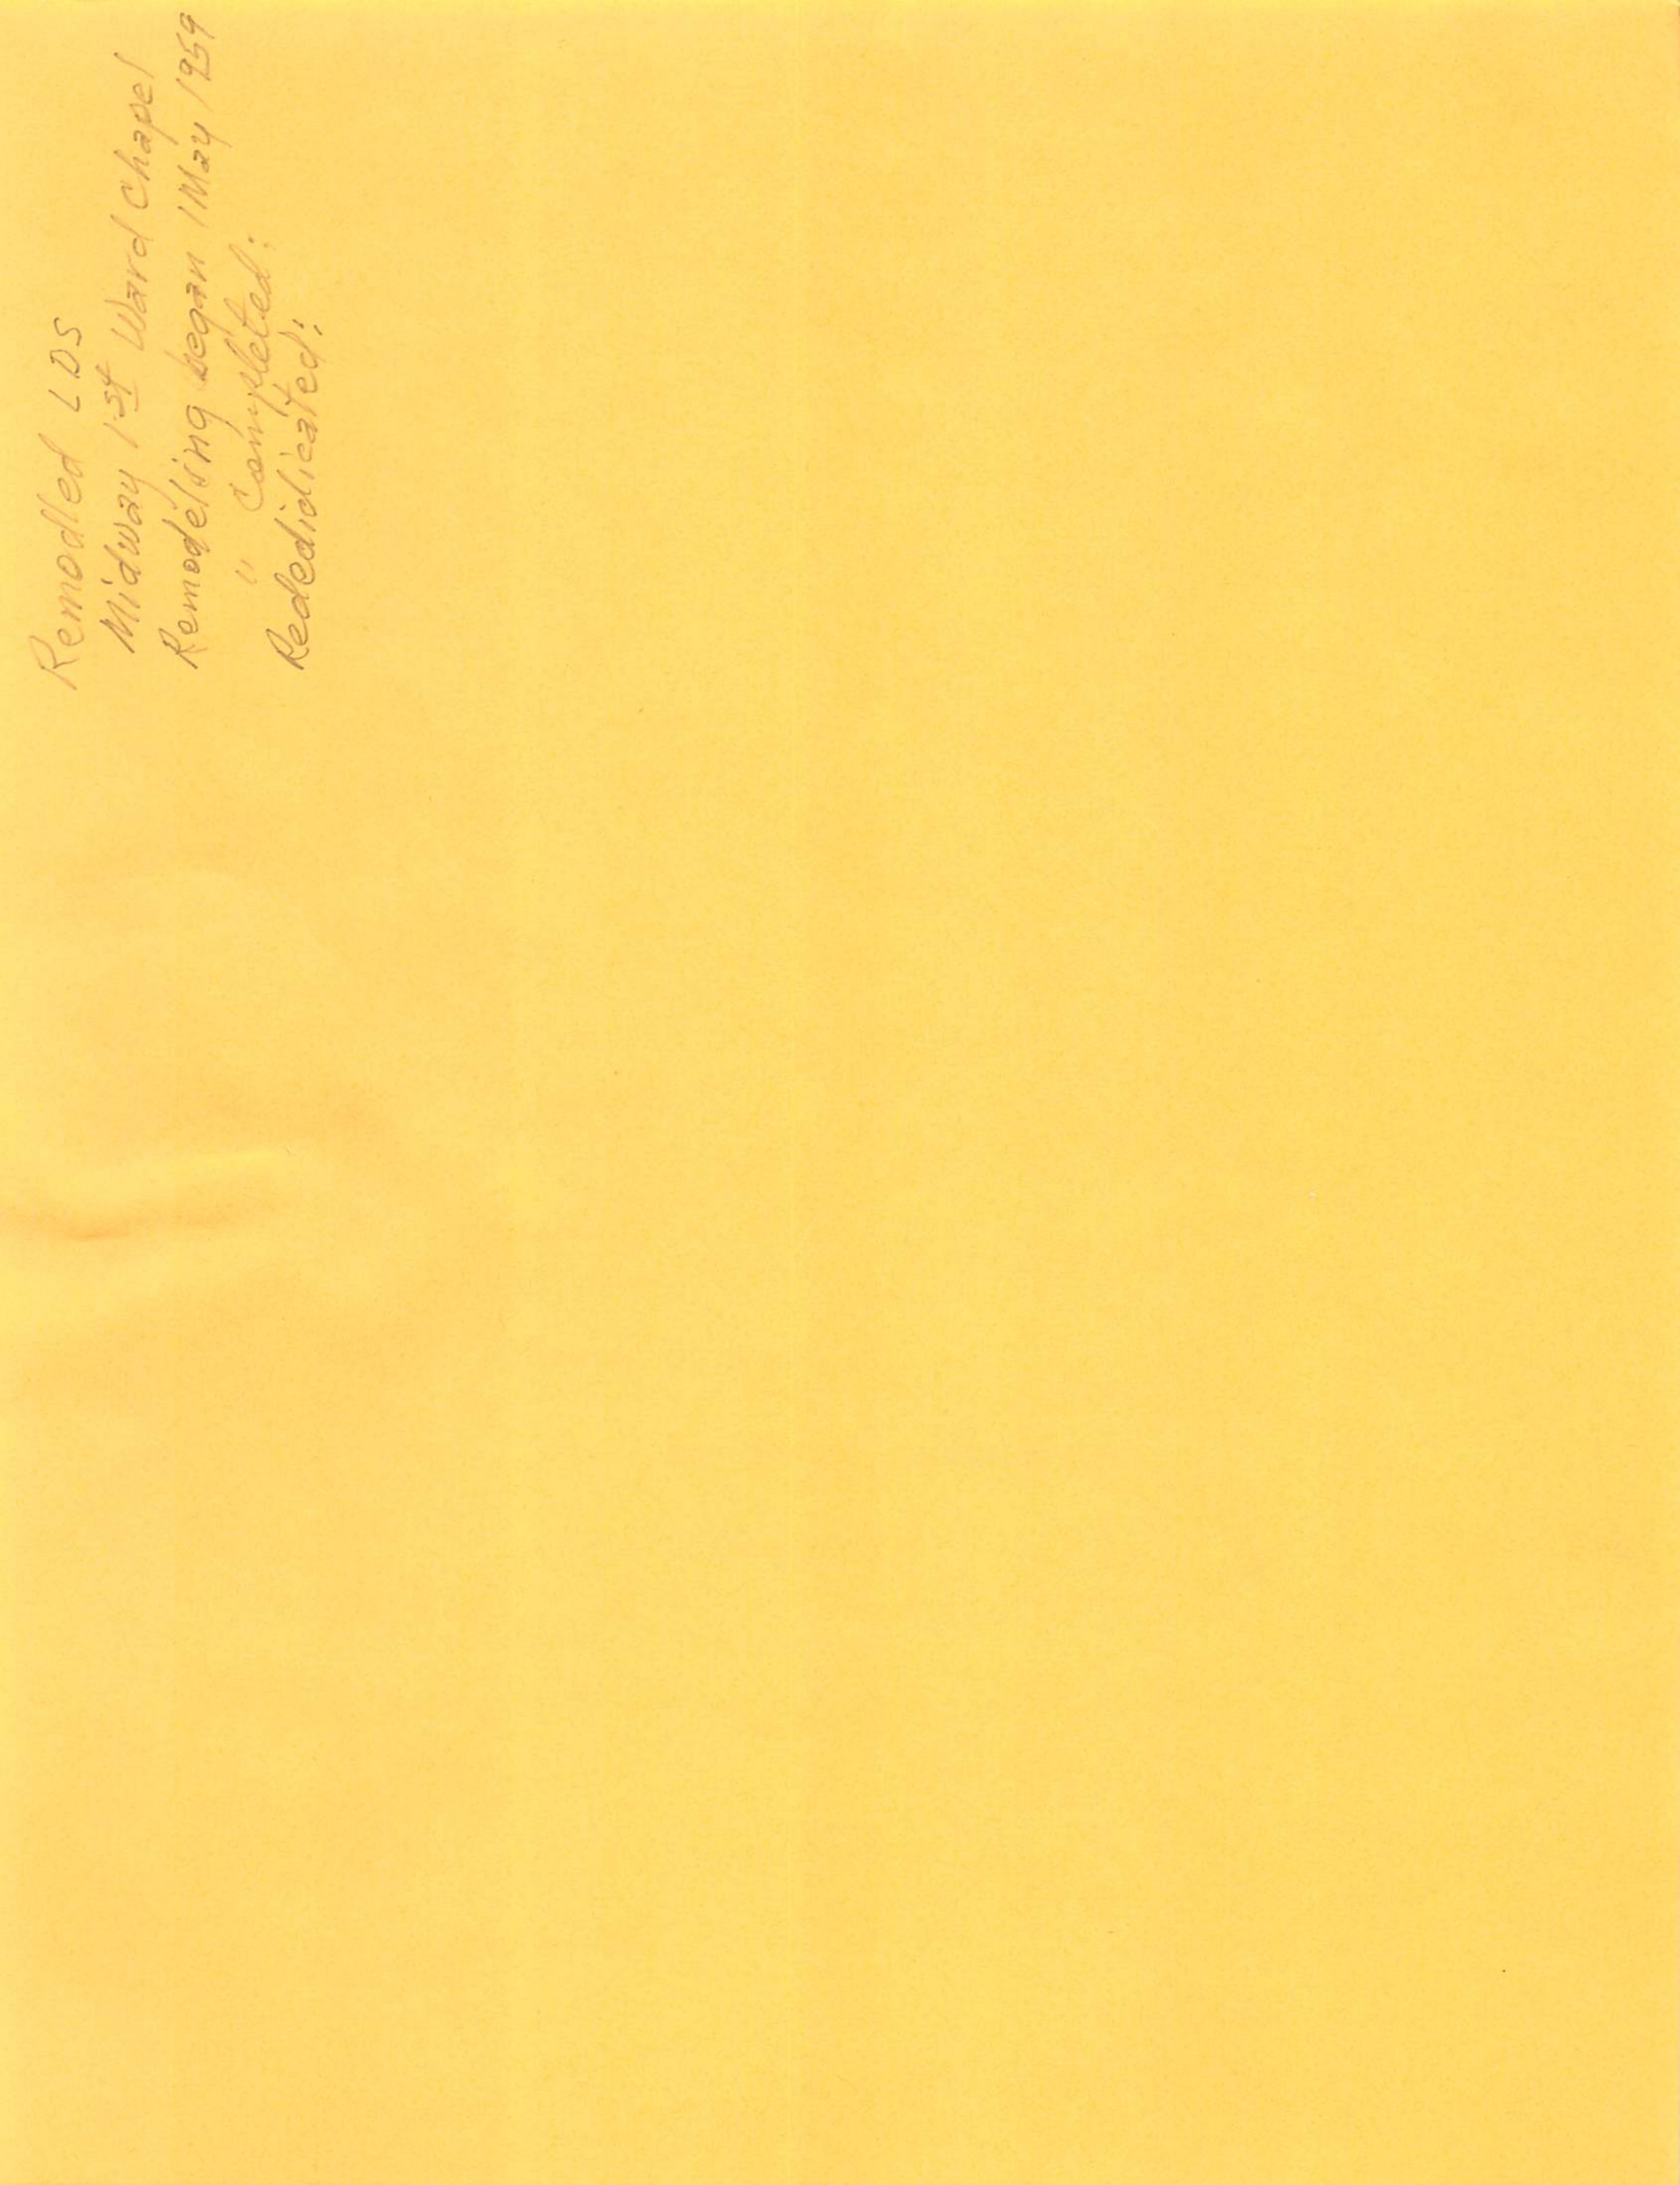 Remodled LDS
Midway 1st Ward Chapel
Remodelsing began 1 May 1959
" Completed:
Rededidicated: